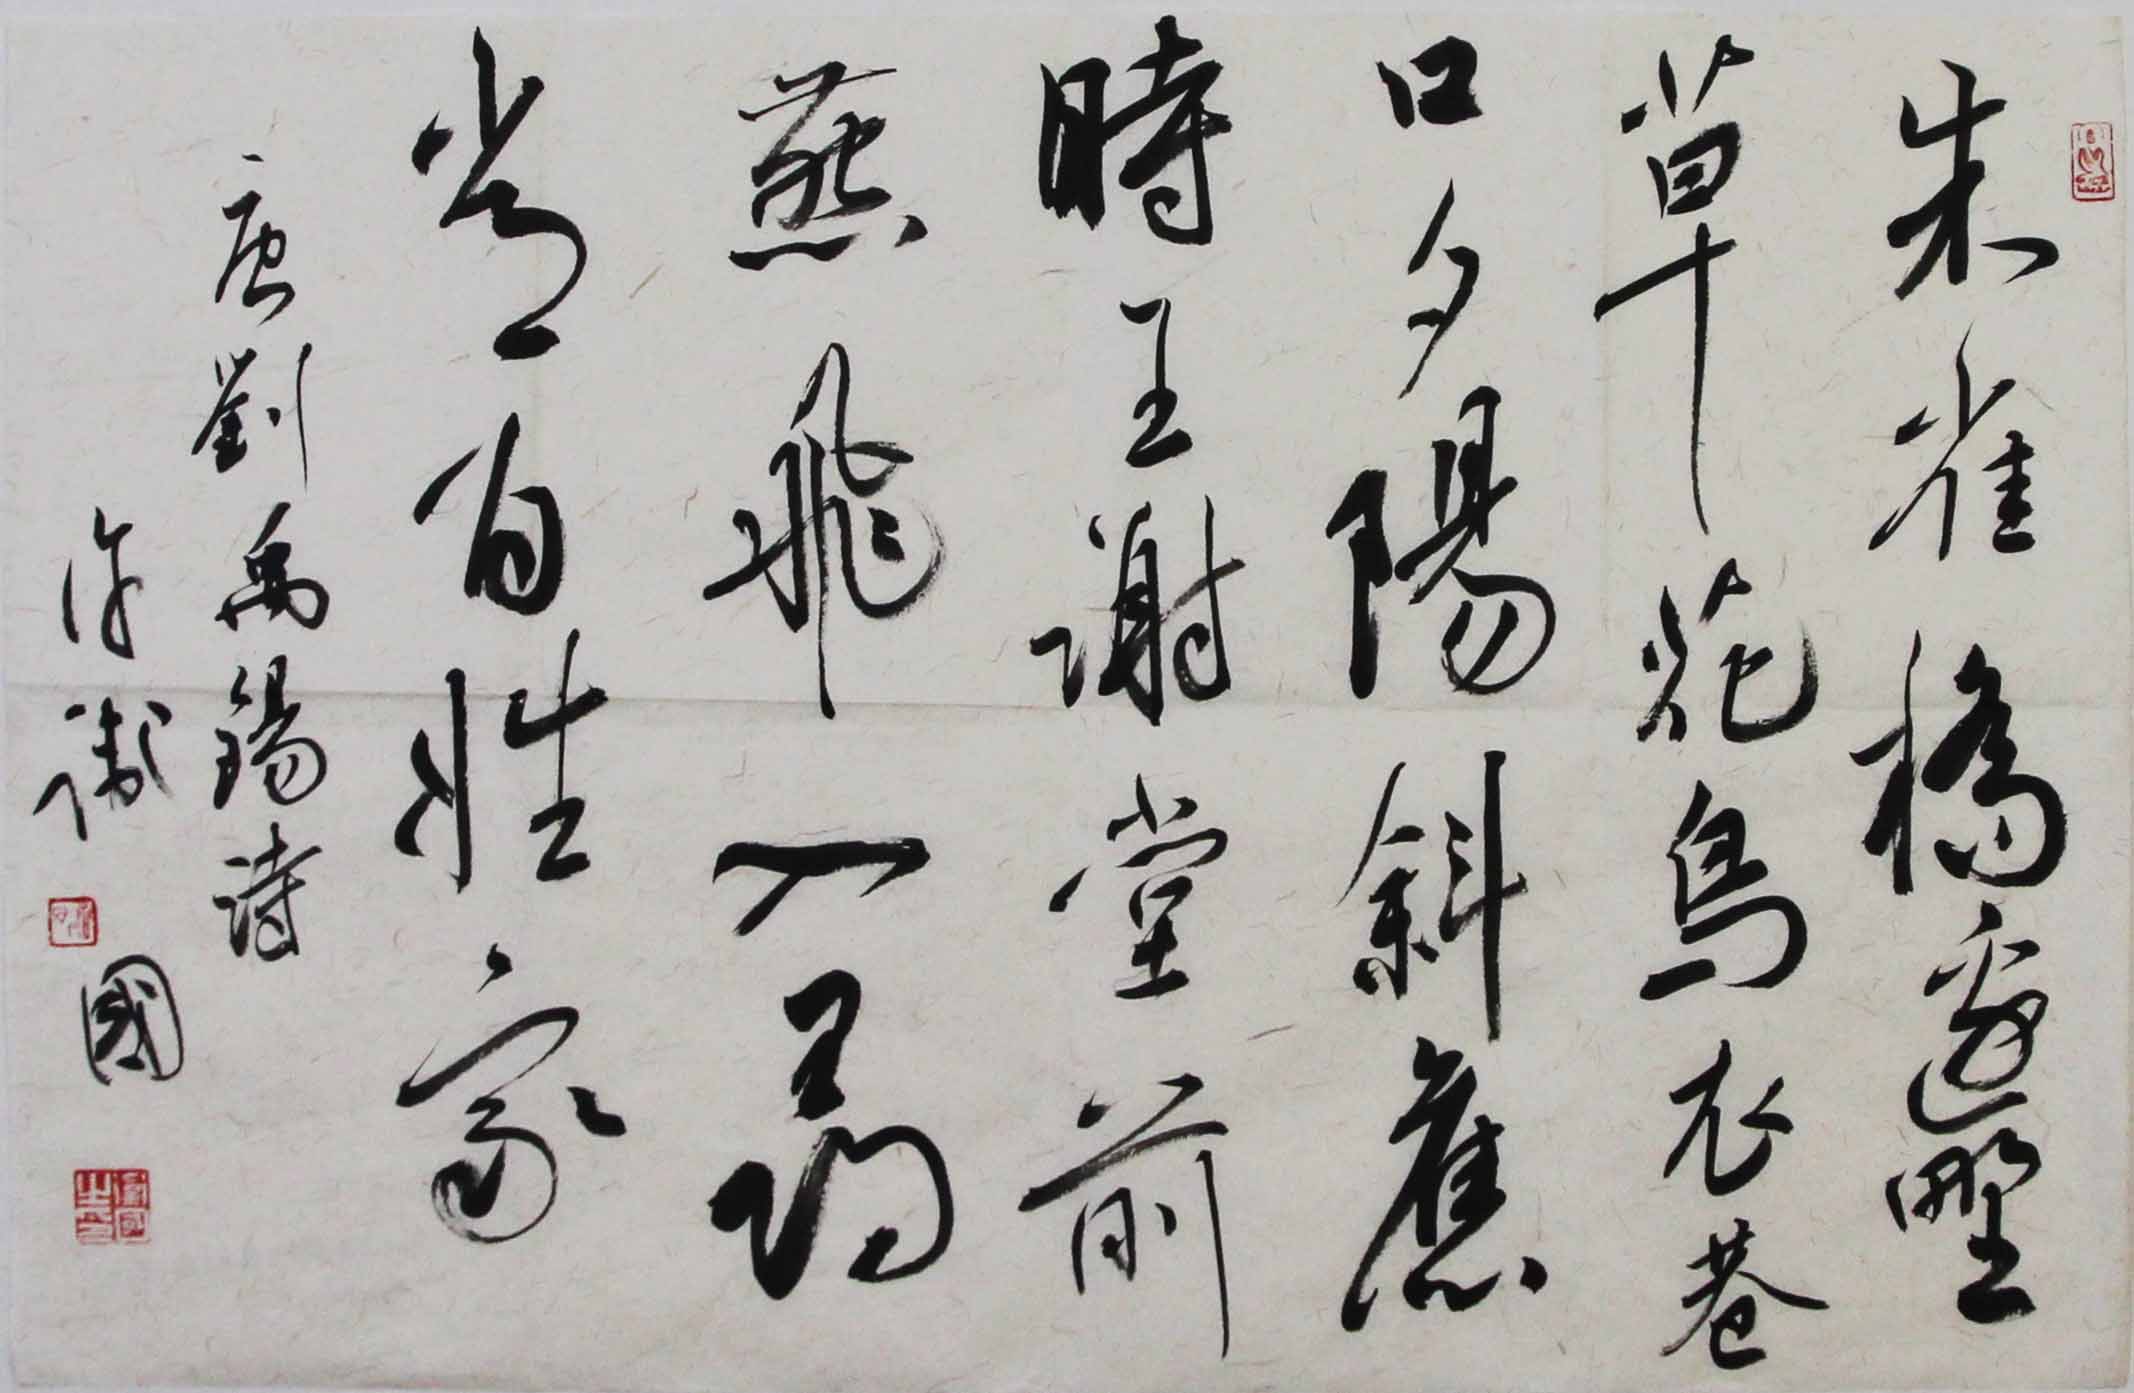 朱雀橋邊野
草花烏衣巷
口夕陽斜舊
時王謝堂前
燕飛入尋
常百姓家
唐劉禹錫詩
衛國